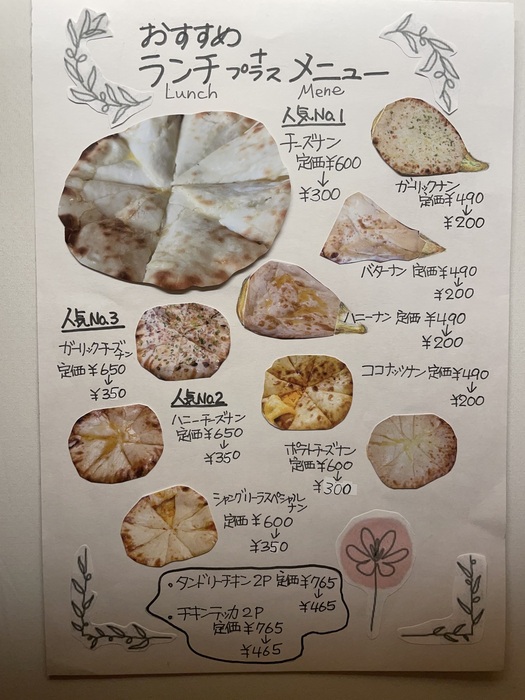 おすすめ
ランチ プラス+ メニュー
Lunch Mene
人気No.1
チーズナン
定価¥600
↓
¥300
ガーリックナン
定価¥490
↓
¥200
バターナン 定価¥490
↓
¥200
ハニーナン 定価¥490
↓
¥200
人気No.3
ガーリックチーズ
ナン
定価¥650
↓
¥350
ココナッツナン 定価¥490
↓
¥200
人気No.2
ハニーチーズナン
定価¥650
↓
¥350
ポテトチーズナン
定価¥600
↓
¥300
シャングリーラスペシャル
ナン
定価¥600
↓
¥350
・タンドリーチキン2P 定価¥765
↓
¥465
・チキンティッカ2P
定価¥765
↓
¥465